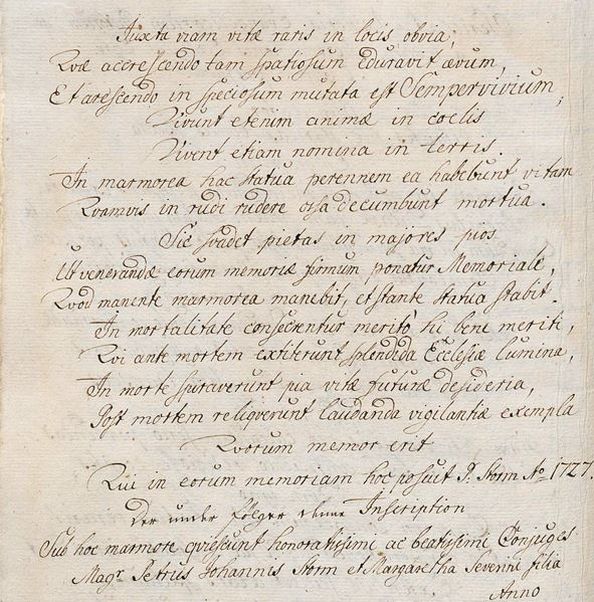 Juxta viam vitæ raris in locis obvia;
Qvæ accrescendo tam spatiosum eduravit ævum,
Et arescendo in speciosum mutata est Sempervivium,
Vivunt etenim animæ in coelis
Vivent etiam nomina in terris.
In marmorea hac statua perennem ea habebunt vitam
Qvamvis in rudi rudere ossa decumbunt mortua.
Sic svadet pietas in majores pios
Ut venerandæ eorum memoriæ firmum ponatur Memoriale,
Qvod manente marmorea manebit, et stante statua stabit.
In mortalitate consecrentur meritò hi bene meriti,
Qvi ante mortem extiterunt splendida Ecclesiæ lumina,
In morte spiraverunt pia vitæ futuræ desideria,
Post mortem reliqverunt laudanda vigilantiæ exempla
Qvorum memor erit
Qui in eorum memoriam hoc posuit P. Storm Ao 1727.
Der under følger denne Inscription
Sub hoc marmore qviescunt honoratissimi ac beatissimi Conjuges
Magr. Petrus Johannis Storm et Margaretha Severini filia
Anno